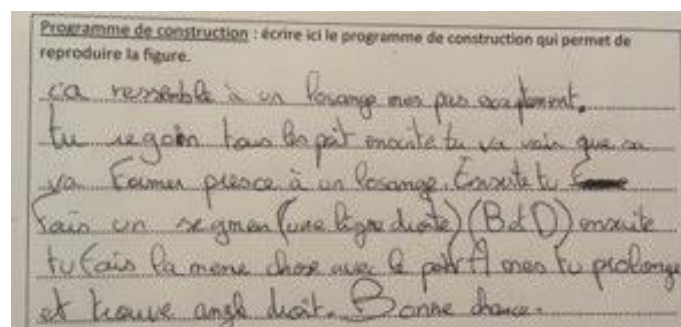 Programme de construction : écrire ici le programme de construction qui permet de
reproduire la figure.
ça ressemble à un losange mes pas exactement.
tu regoin tous les poit ensuite tu va voir que ca
va former presce à un losange. Ensuite tu
fais un segmen (une ligne droite) (B et D) ensuite
tu fais la meme chose avec le poit A mes tu prolonge
et trouve angle droit. Bonne chance.